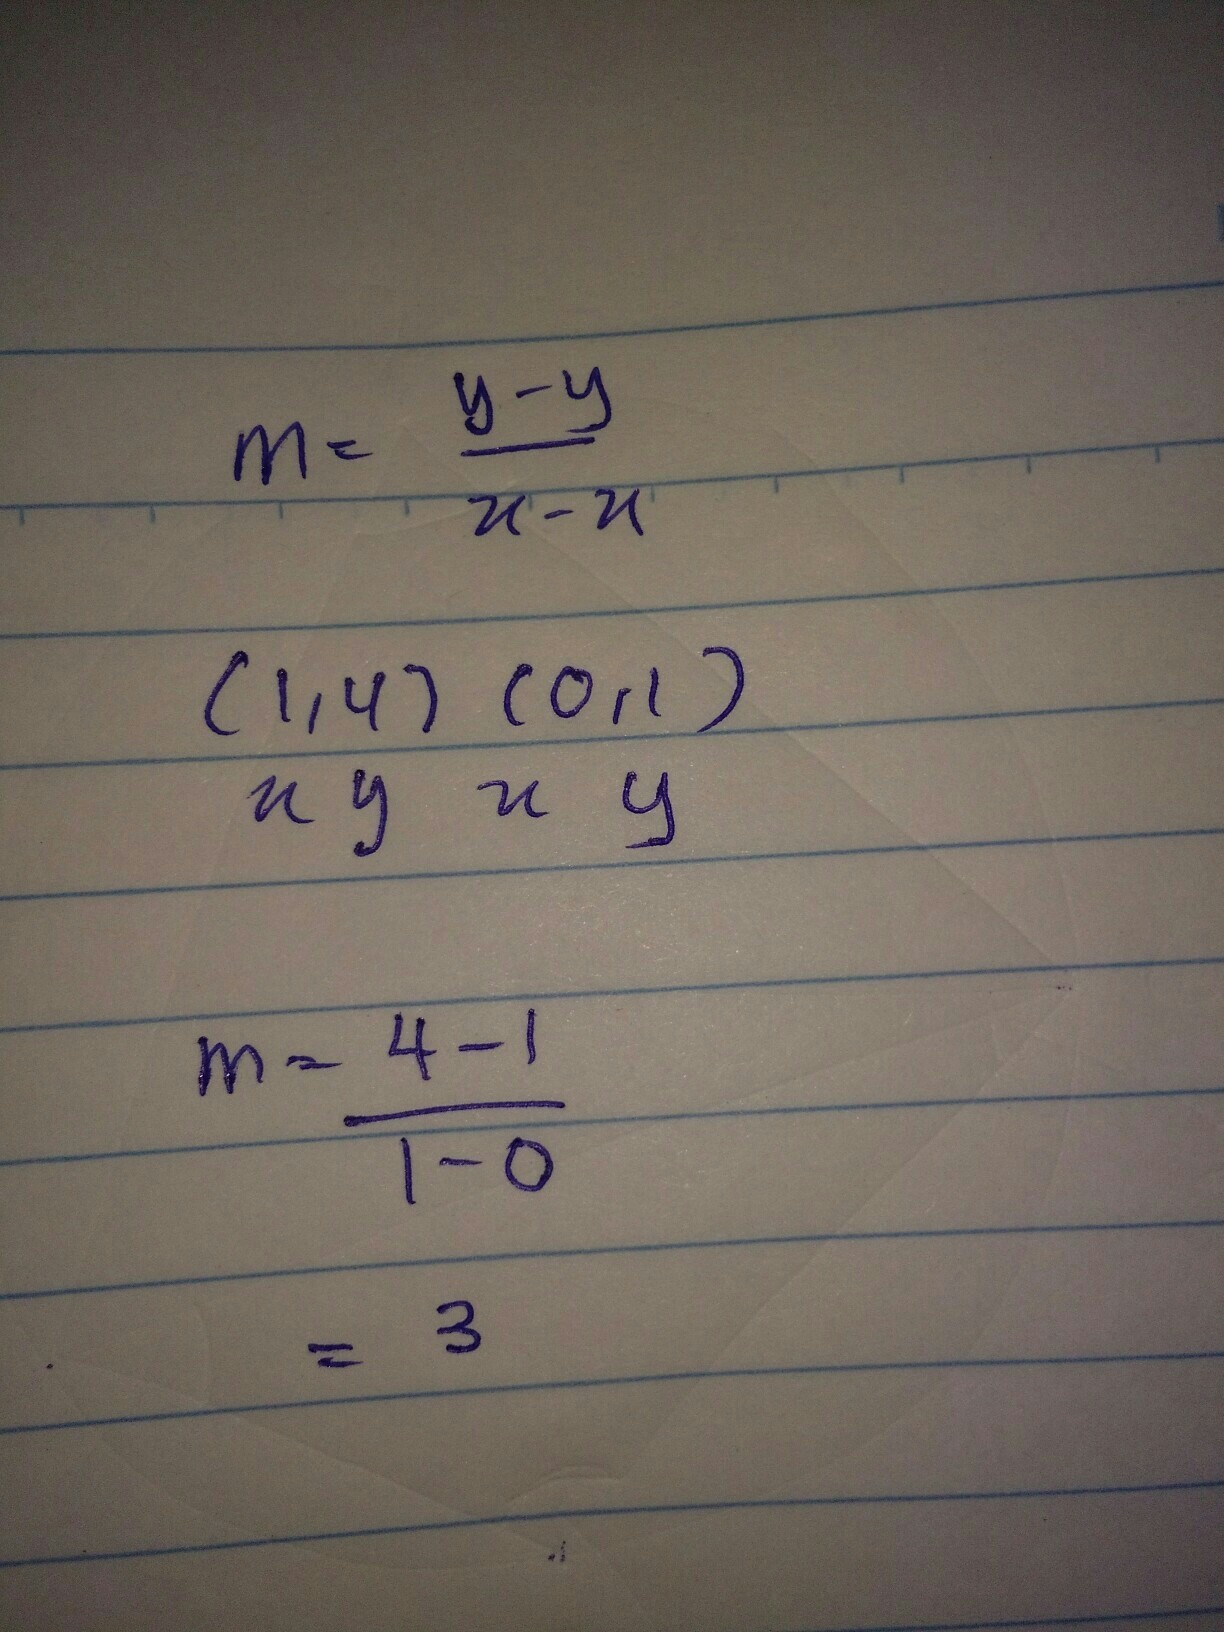 m = y-y
x-x
(1,4) (0,1)
x y x y
m = 4-1
1-0
= 3